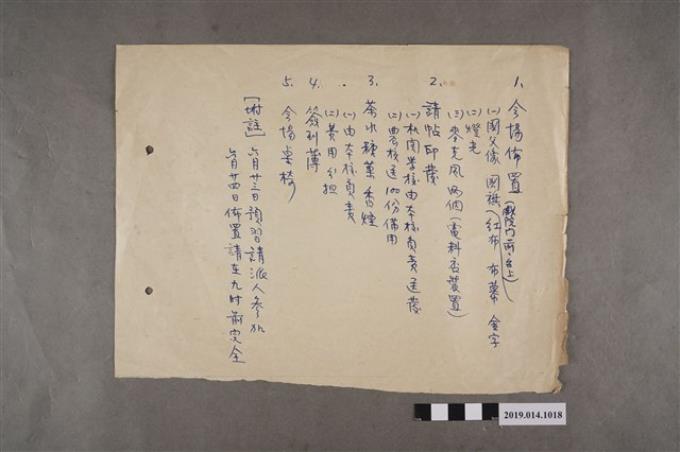 1. 會場佈置(戲院門前、台上)
㈠國父像 國旗(紅布 布幕 金字
㈡燈光
㈢麥克風兩個(電料否裝置)
2. 請帖印發
㈠机関学校由本校負責送發
㈡農校送100份備用
3. 茶水糖菓香煙
㈠由本校負責
㈡費用分担
4. 簽到簿
5. 會場桌椅
[附註] 六月廿三日預習請派人參加
六月廿四日佈置請在九时前完全
2019.014.1018